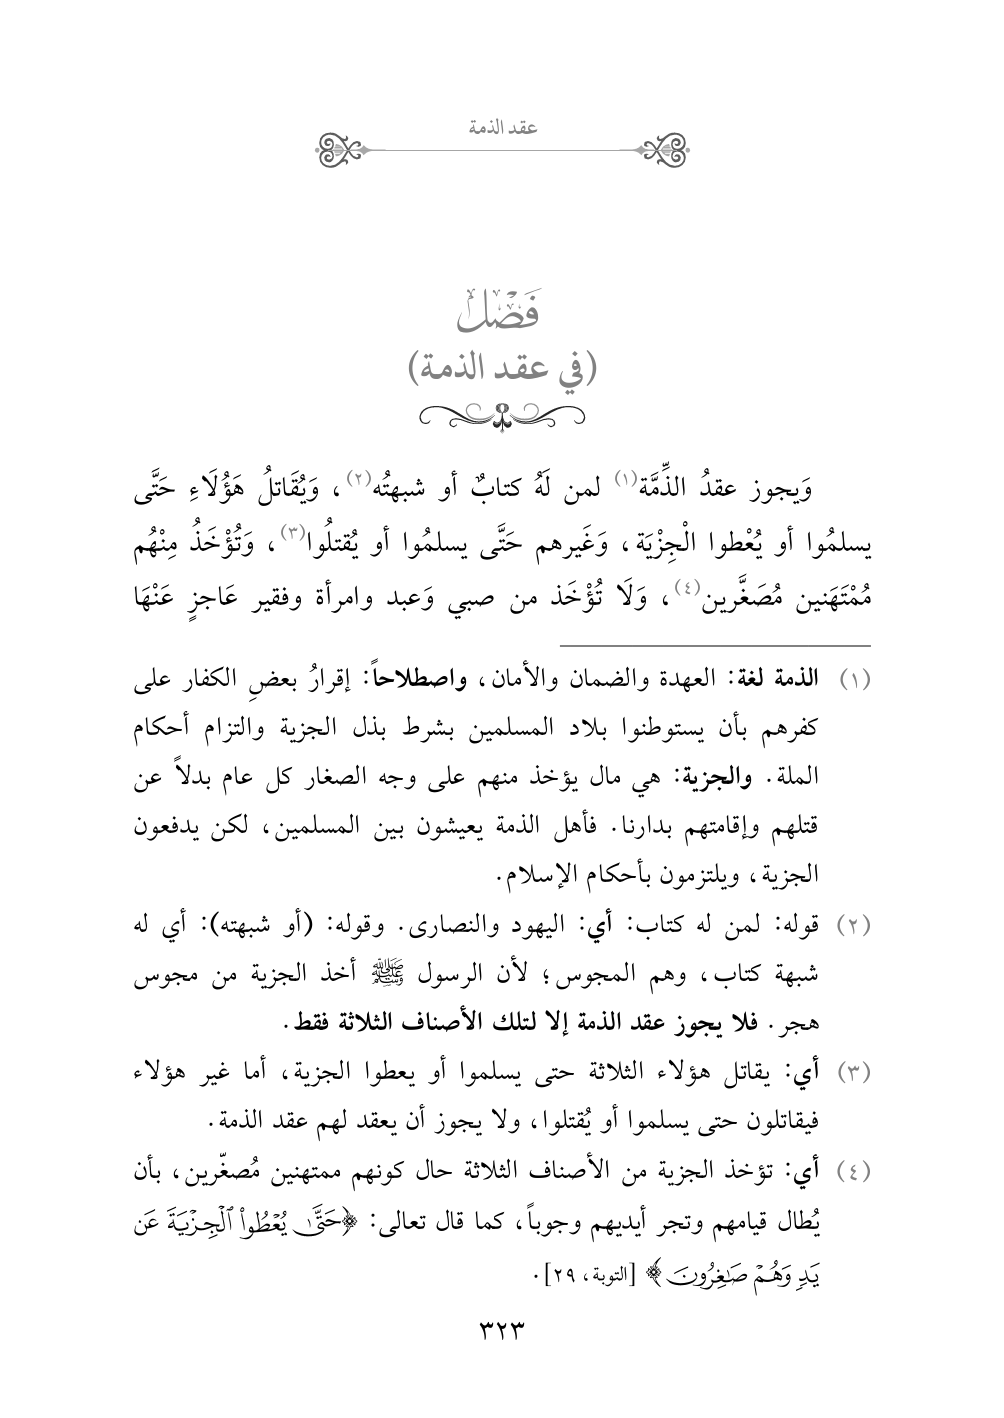 عقد الذمة
فَصْل
(في عقد الذمة)
وَيجوز عقدُ الذِّمَّة(١) لمن لَهُ كتابٌ أو شبهتُه(٢)، وَيُقَاتلُ هَؤُلَاءِ حَتَّى
يسلمُوا أو يُعْطوا الْجِزْيَة، وَغَيرهم حَتَّى يسلمُوا أو يُقتلُوا(٣)، وَتُؤْخَذُ مِنْهُم
مُمْتَهَنين مُصَغَّرين(٤)، وَلَا تُؤْخَذ من صبي وَعبد وامرأة وفقير عَاجزٍ عَنْهَا
(١) الذمة لغة: العهدة والضمان والأمان، واصطلاحاً: إقرارُ بعضِ الكفار على
كفرهم بأن يستوطنوا بلاد المسلمين بشرط بذل الجزية والتزام أحكام
الملة. والجزية: هي مال يؤخذ منهم على وجه الصغار كل عام بدلاً عن
قتلهم وإقامتهم بدارنا. فأهل الذمة يعيشون بين المسلمين، لكن يدفعون
الجزية، ويلتزمون بأحكام الإسلام.
(٢) قوله: لمن له كتاب: أي: اليهود والنصارى. وقوله: (أو شبهته): أي له
شبهة كتاب، وهم المجوس؛ لأن الرسول ﷺ أخذ الجزية من مجوس
هجر. فلا يجوز عقد الذمة إلا لتلك الأصناف الثلاثة فقط.
(٣) أي: يقاتل هؤلاء الثلاثة حتى يسلموا أو يعطوا الجزية، أما غير هؤلاء
فيقاتلون حتى يسلموا أو يُقتلوا، ولا يجوز أن يعقد لهم عقد الذمة.
(٤) أي: تؤخذ الجزية من الأصناف الثلاثة حال كونهم ممتهنين مُصغّرين، بأن
يُطال قيامهم وتجر أيديهم وجوباً، كما قال تعالى: ﴿حَتَّىٰ يُعۡطُواْ ٱلۡجِزۡيَةَ عَن
يَدٖ وَهُمۡ صَٰغِرُونَ﴾ [التوبة، ٢٩].
٣٢٣